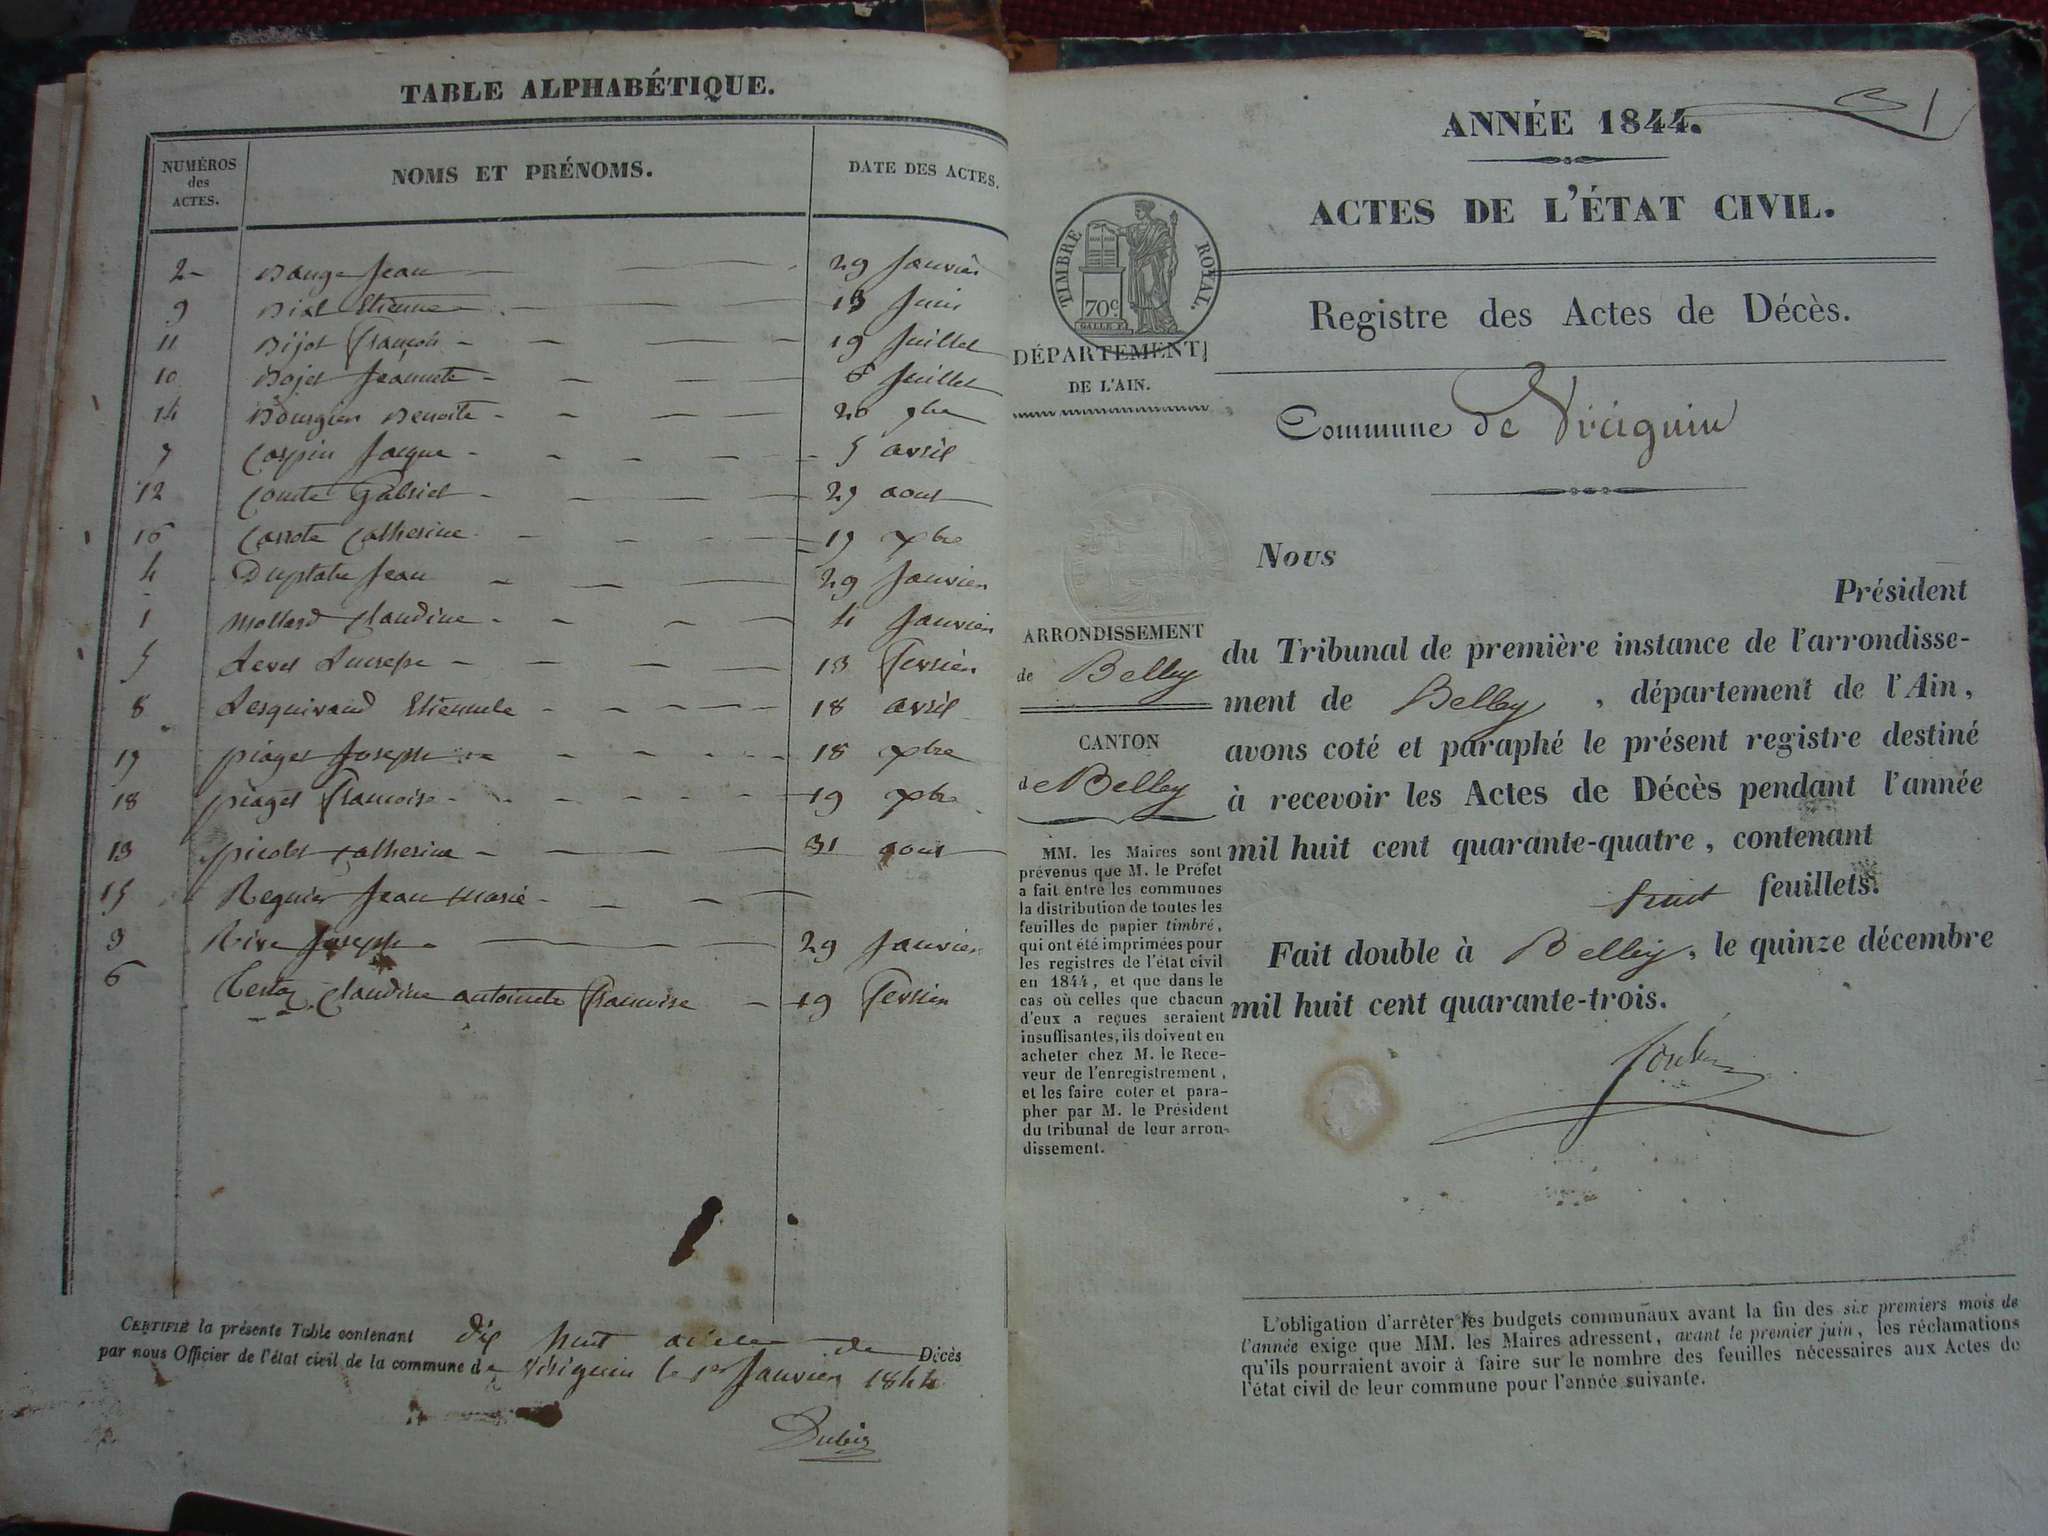 TABLE ALPHABÉTIQUE.
NUMÉROS
des
ACTES.
NOMS ET PRÉNOMS.
DATE DES ACTES.
2 Jean 29 Janvier
9 Etienne 13 Juin
11 François 19 Juillet
10 Jeannette 6 Juillet
14 Benoite 20 9bre
7 Carpin Jacque 5 avril
12 Comte Gabriel 29 aout
16 Catherine 19 xbre
4 Jean 29 Janvier
1 Mollard Claudine 4 Janvier
5 13 Fevrier
8 18 avril
17 piaget Joseph 18 xbre
18 piaget francoise 19 xbre
13 picolet Catherine 31 aout
15 Regnier Jean Marie
3 Rive Joseph 29 Janvier
6 Claudine antoinete francoise 19 Fevrier
CERTIFIÉ la présente Table contenant dix huit actes de Décès
par nous Officier de l'état civil de la commune de Viriguin le 1er Janvier 1844
ANNÉE 1844.
ACTES DE L'ÉTAT CIVIL.
TIMBRE ROYAL.
70c
Registre des Actes de Décès.
DÉPARTEMENT
DE L'AIN.
Commune de Viriguin
Nous
Président
ARRONDISSEMENT
de Belley
CANTON
de Belley
du Tribunal de première instance de l'arrondisse-
ment de Belley, département de l'Ain,
avons coté et paraphé le présent registre destiné
à recevoir les Actes de Décès pendant l'année
mil huit cent quarante-quatre, contenant
huit feuillets.
Fait double à Belley, le quinze décembre
mil huit cent quarante-trois.
MM. les Maires sont
prévenus que M. le Préfet
a fait entre les communes
la distribution de toutes les
feuilles de papier timbré,
qui ont été imprimées pour
les registres de l'état civil
en 1844, et que dans le
cas où celles que chacun
d'eux a reçues seraient
insuffisantes, ils doivent en
acheter chez M. le Rece-
veur de l'enregistrement,
et les faire coter et para-
pher par M. le Président
du tribunal de leur arron-
dissement.
L'obligation d'arrêter les budgets communaux avant la fin des six premiers mois de
l'année exige que MM. les Maires adressent, avant le premier juin, les réclamations
qu'ils pourraient avoir à faire sur le nombre des feuilles nécessaires aux Actes de
l'état civil de leur commune pour l'année suivante.